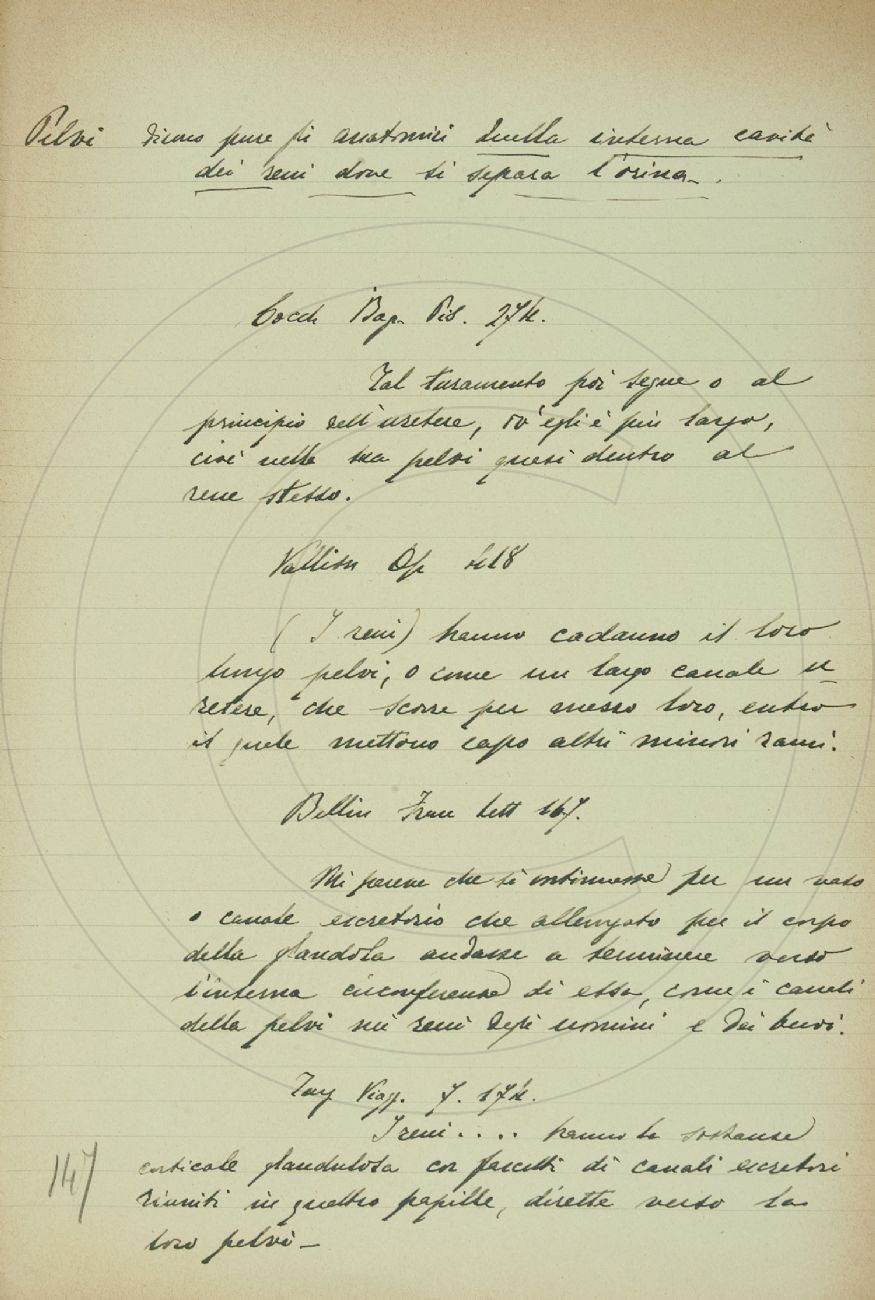 Pelvi dicono pure gli anatomici quella interna cavità
dei reni dove si separa l'orina.
Cocch Bag. Pis. 274.
Tal turamento poi segue o al
principio dell'uretere, ov'egli è più largo,
cioè nella sua pelvi quasi dentro al
rene stesso.
Vallisn Op 418
(I reni) hanno cadauno il loro
lungo pelvi, o come un largo canale u-
retere, che scorre per mezzo loro, entro
il quale mettono capo altri minori rami.
Bellin Fran lett 167.
Mi pareva che si continuasse per un vaso
o canale escretorio che allungato per il corpo
della glandola andasse a terminare verso
l'interna circonferenza di essa, come i canali
della pelvi nei reni degli uomini e dei buoi.
Targ Viagg. 7. 174.
I reni.... hanno la sostanza
corticale glandulosa con fascetti di canali escretori
riuniti in quattro papille, dirette verso la
loro pelvi
147